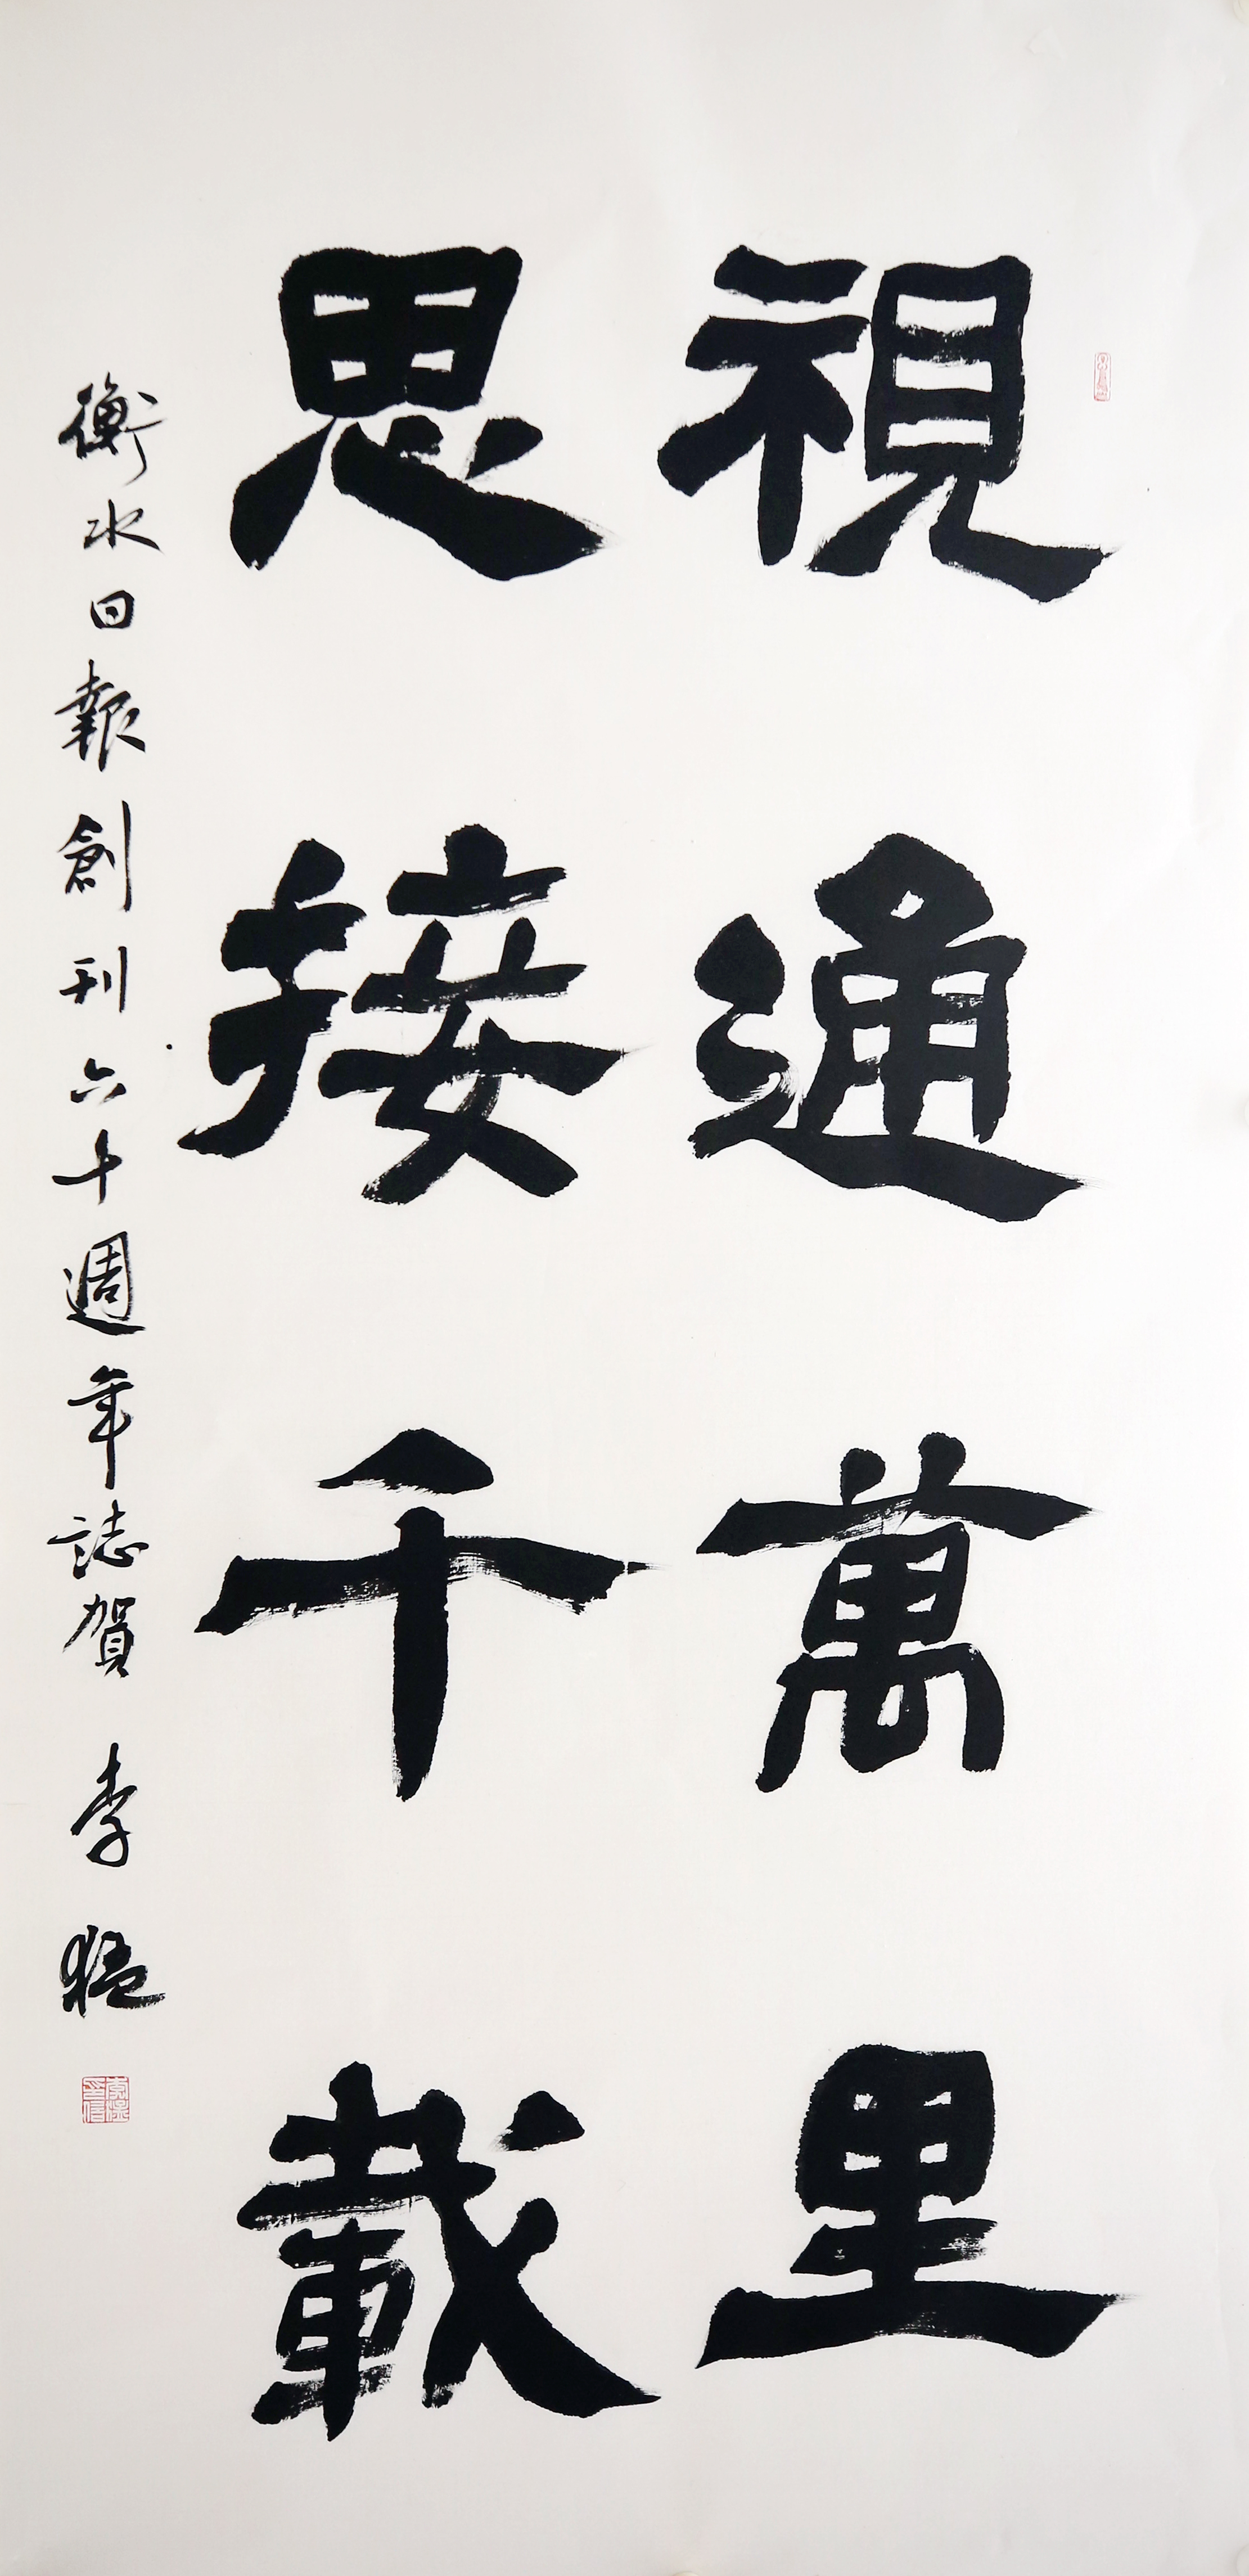 視通萬里
思接千載
衡水日報創刊六十週年誌賀 李猛